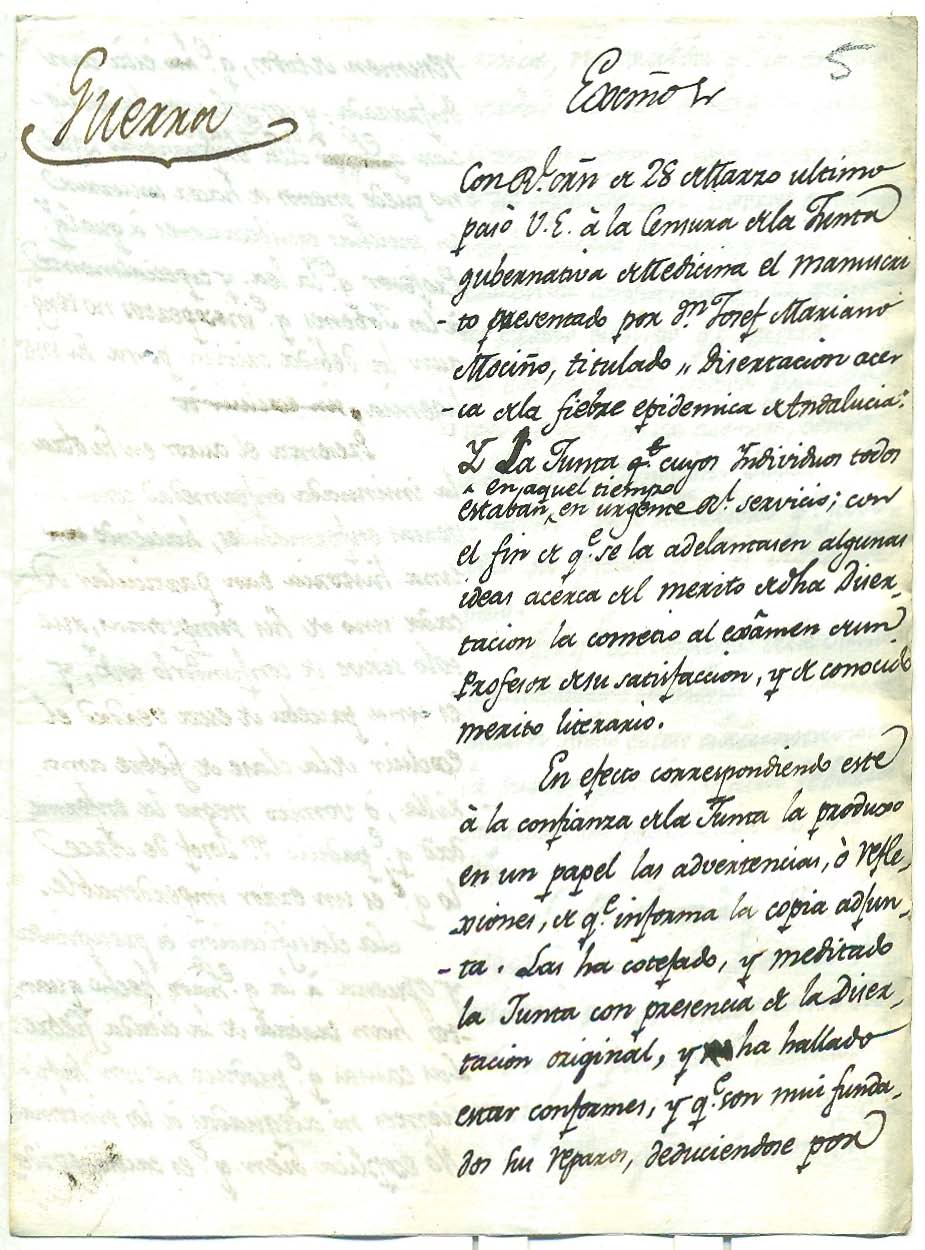 5
Guerra
Exmo Sr
Con Rl. orn de 28 de Marzo ultimo
pasò V.E. à la Censura de la Junta
gubernativa de Medicina el manuscri
-to presentado por Dn Josef Mariano
Mociño, titulado „ Disertacion acer
-ca de la fiebre epidemica de Andalucia:"
Y La Junta qe. cuyos Individuos todos
^ en aquel tiempo
estaban ^ en urgente Rl. servicio; con
el fin de qe. se la adelantasen algunas
ideas acerca del merito de dha Diser-
tacion la cometio al exâmen de un
Profesor de su satisfaccion, y de conocido
merito literario.
En efecto correspondiendo este
à la confianza de la Junta la produxo
en un papel las advertencias, ò refle-
xiones, de qe. informa la copia adjun-
-ta. Las ha cotejado, y meditado
la Junta con presencia de la Diser-
tacion original, y ha hallado
estar conformes, y qe. son mui funda-
dos sus reparos, deduciendose por